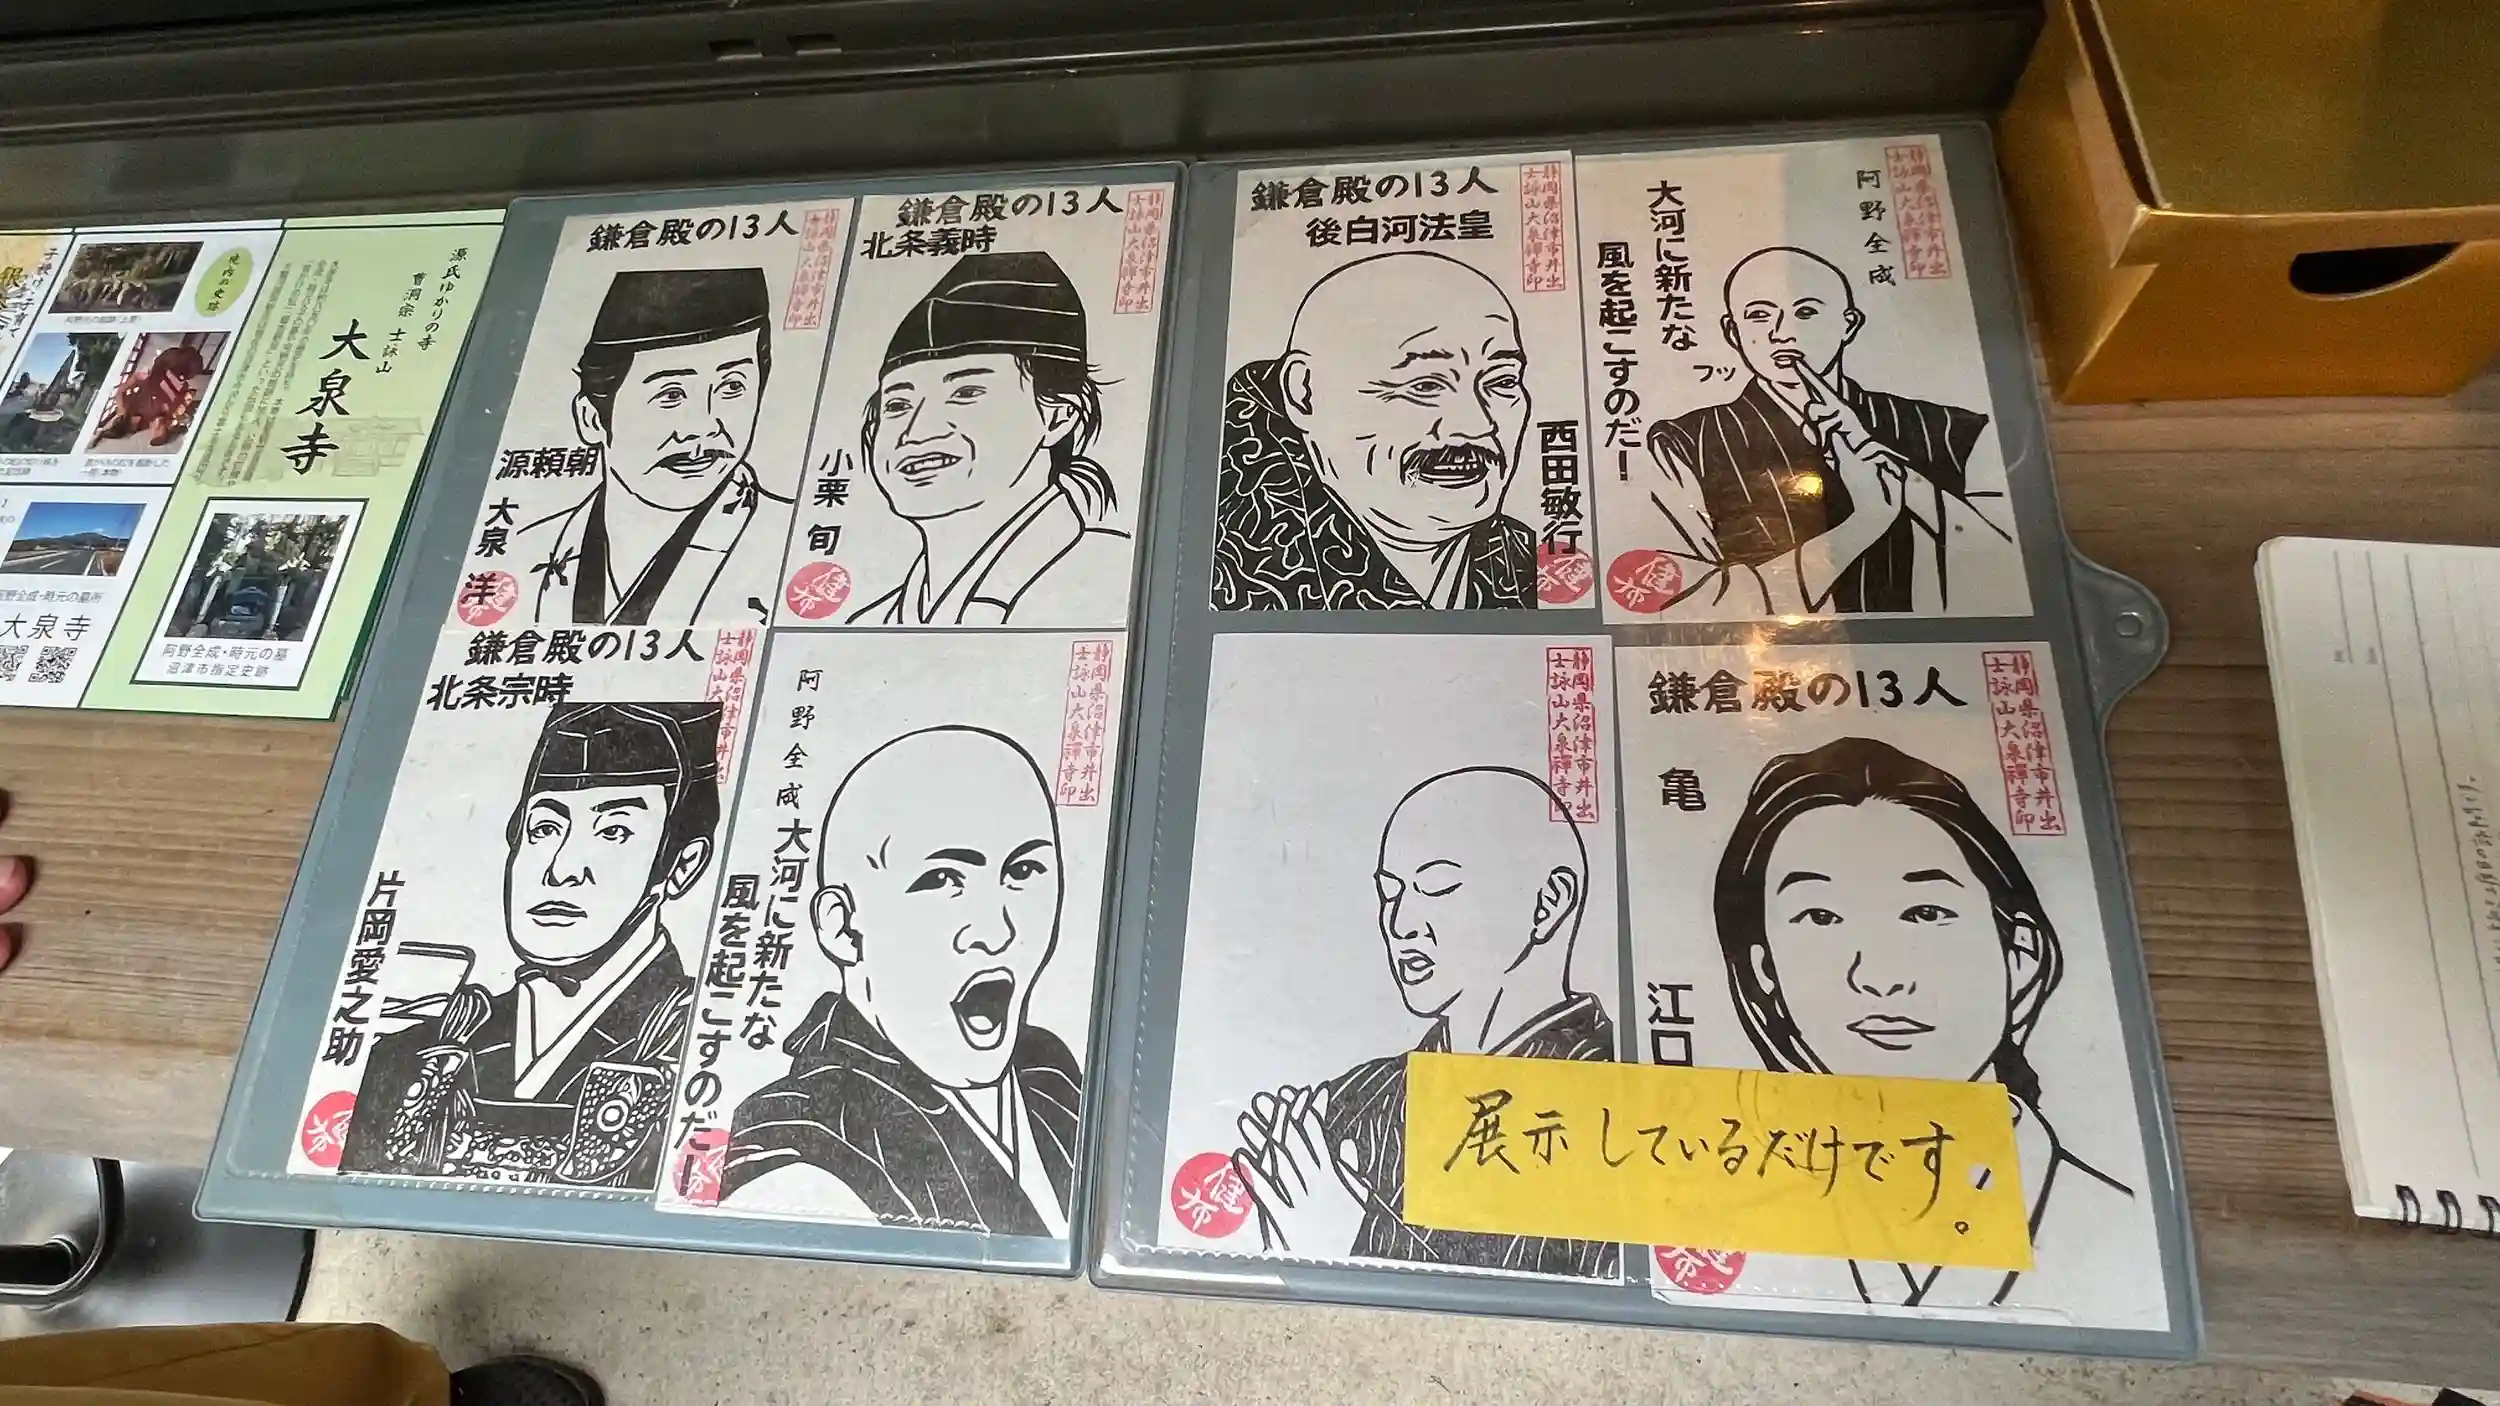 境内の史跡
大泉寺
源氏ゆかりの寺
曹洞宗 士詠山
大泉寺
阿野全成・時元の墓
沼津市指定史跡
鎌倉殿の13人
源頼朝
大泉 洋
静岡県沼津市井出
士詠山大泉禅寺印
鎌倉殿の13人
北条義時
小栗 旬
静岡県沼津市井出
士詠山大泉禅寺印
鎌倉殿の13人
北条宗時
片岡愛之助
静岡県沼津市井出
士詠山大
阿野全成
大河に新たな
風を起こすのだー
静岡県沼津市井出
士詠山大泉禅寺印
鎌倉殿の13人
後白河法皇
西田敏行
静岡県沼津市井出
士詠山大泉禅寺印
阿野全成
大河に新たな
風を起こすのだ!
フッ
静岡県沼津市井出
士詠山大泉禅寺印
静岡県沼津市井出
士詠山大泉禅寺印
鎌倉殿の13人
亀
江口
静岡県沼津市井出
士詠山大泉禅寺印
展示しているだけです。